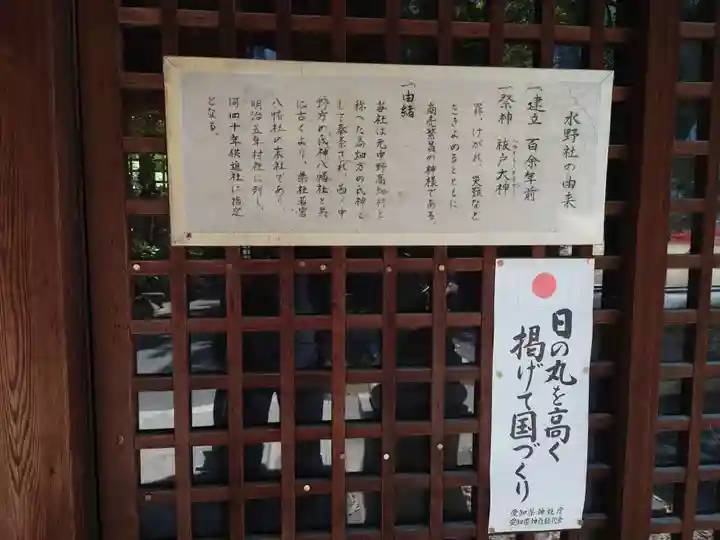 水野社の由来
一建立 百余年前
一祭神 祓戸大神
罪、けがれ、災難など
をきよめるとともに
商売繁昌の神様である。
一由緒
当社は元中野高畑村と
称へた高畑方の氏神と
して奉斎され、西、中
野方の氏神八幡社と共
に古くより、県社若宮
八幡社の末社であり、
明治五年村社に列し、
同四十年供進社に指定
となる。
日の丸を高く
掲げて国づくり
愛知県神社庁
愛知県神社総代会